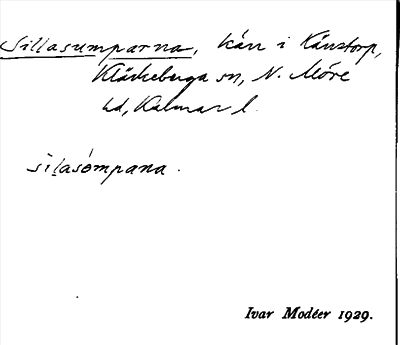 Sillasumparna, kärr i Kånstorp,
Kläckeberga sn, N. Möre
hd, Kalmar l.
silasömpana.
Ivar Modéer 1929.